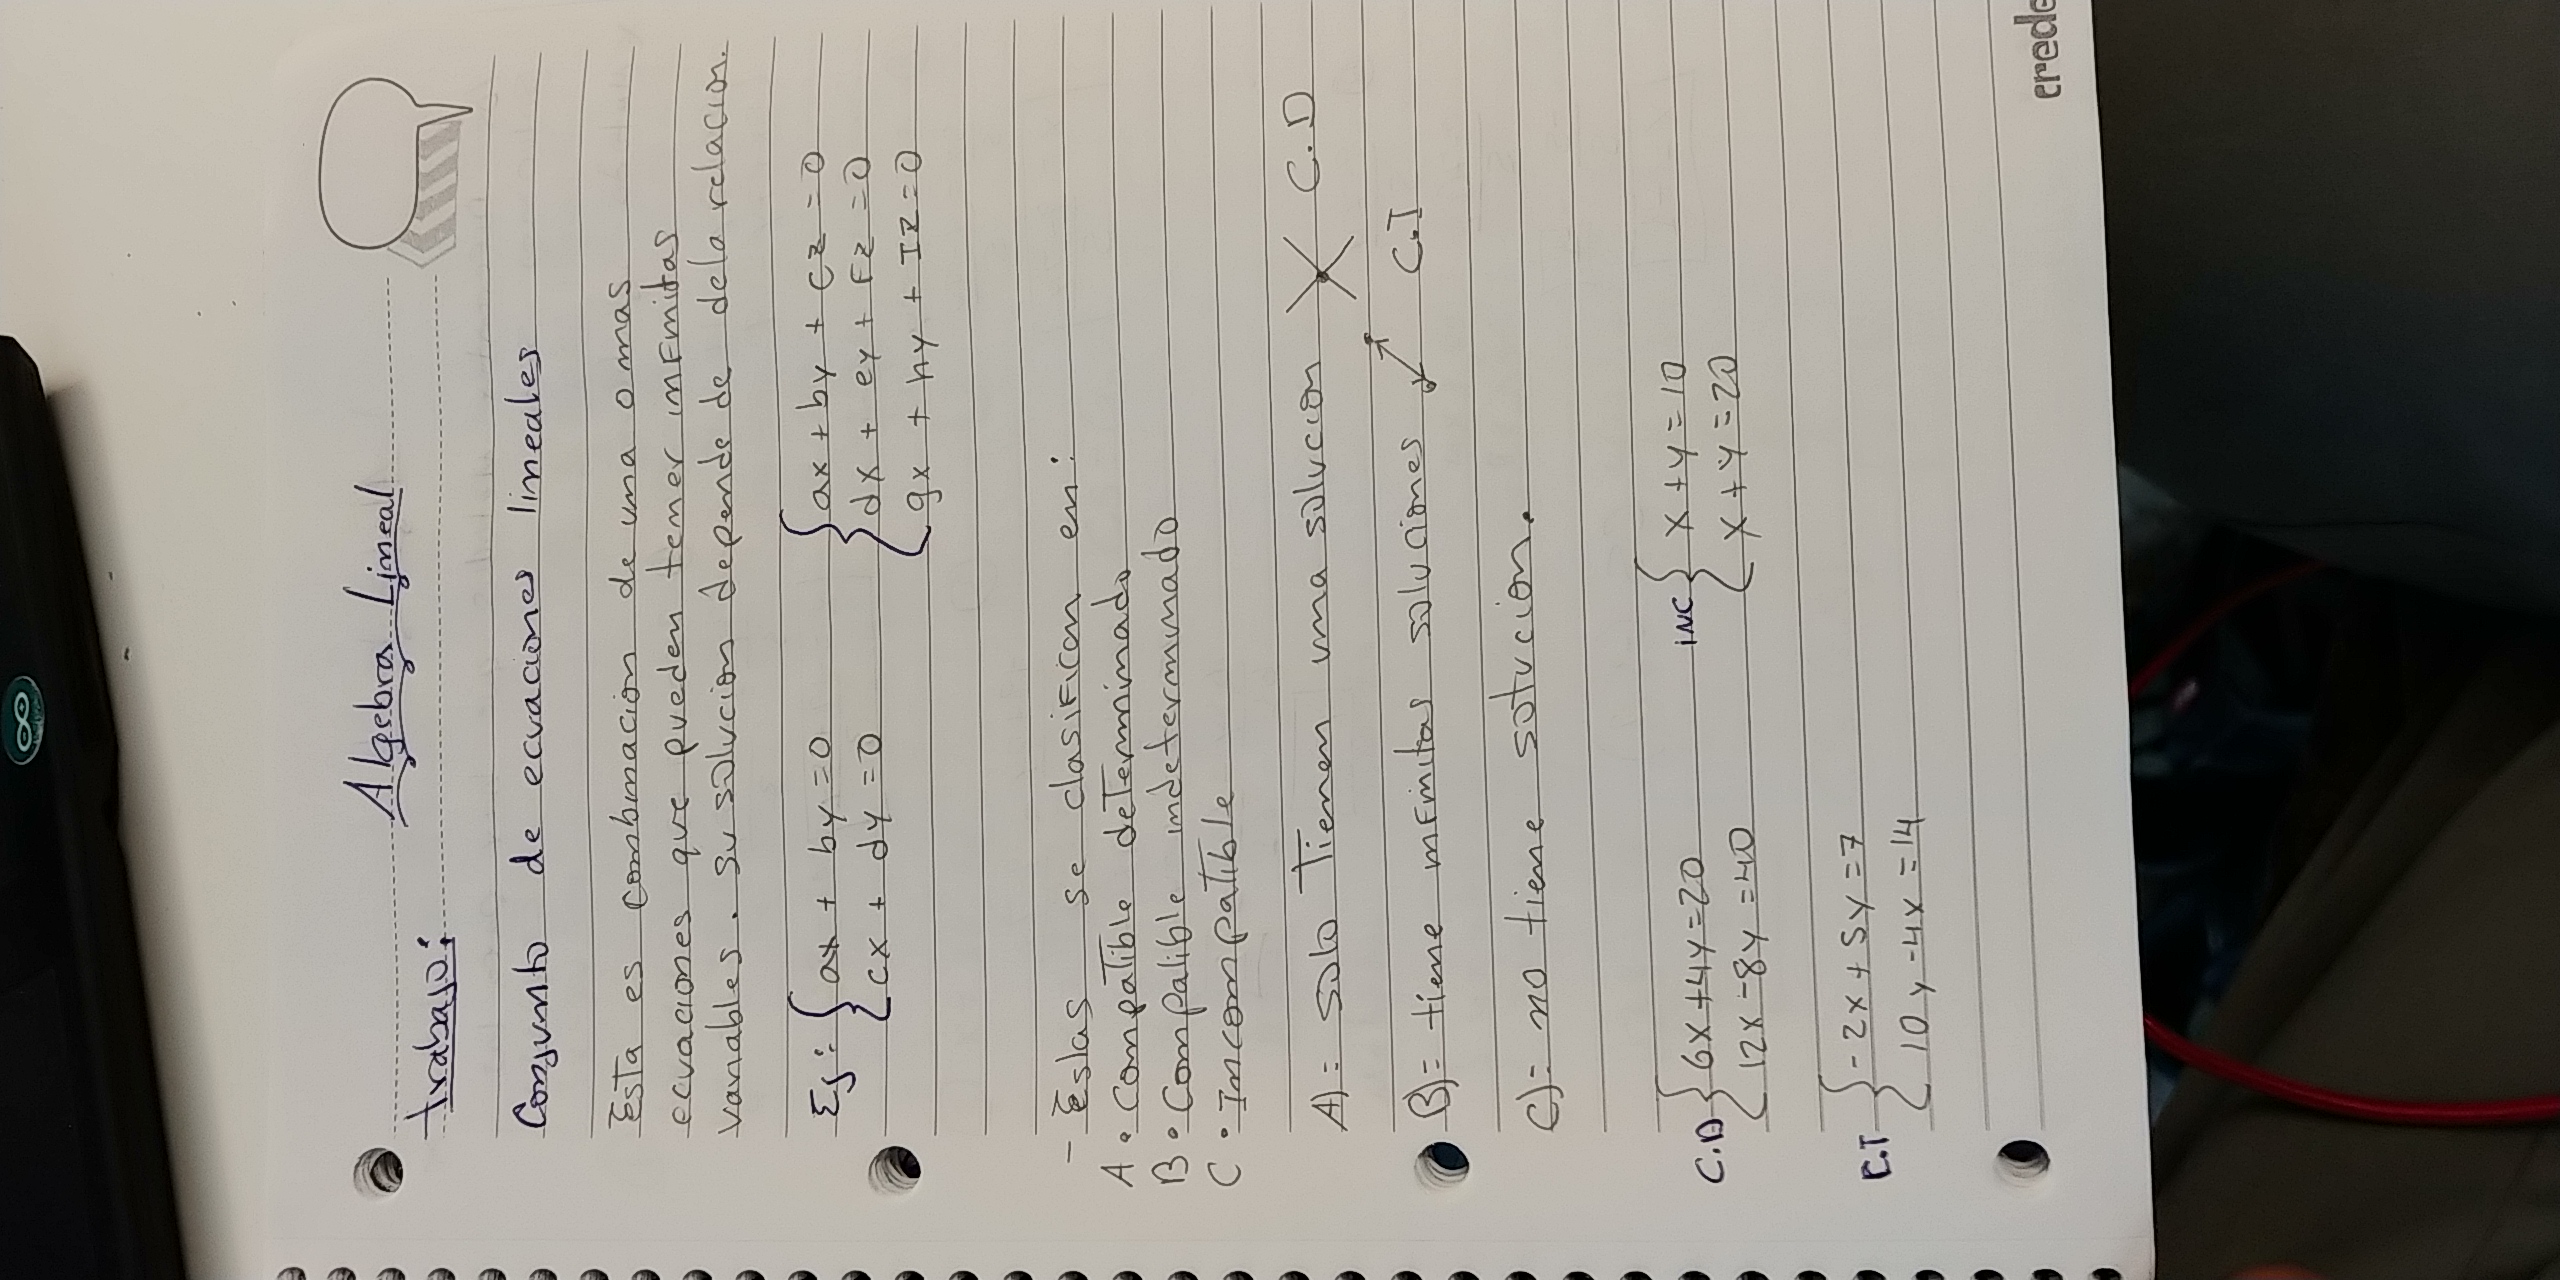 Algebra Lineal
trabajo:
Conjunto de ecuaciones lineales
Esta es combinacion de una o mas
ecuaciones que pueden tener infinitas
variables. Su solucion depende de dela relacion.
Ej: { ax + by = 0
cx + dy = 0
{ ax + by + cz = 0
dx + ey + Fz = 0
gx + hy + Iz = 0
- Estas se clasifican en:
A • Compatible determinado
B • Compatible indeterminado
C • Incompatible
A) = solo Tienen una solucion C.D
B) = tiene infinitas soluciones C.I
C) = no tiene solucion.
C.D { 6x + 4y = 20
12x - 8y = 40
INC { x + y = 10
x + y = 20
C.I { -2x + 5y = 7
10y - 4x = 14